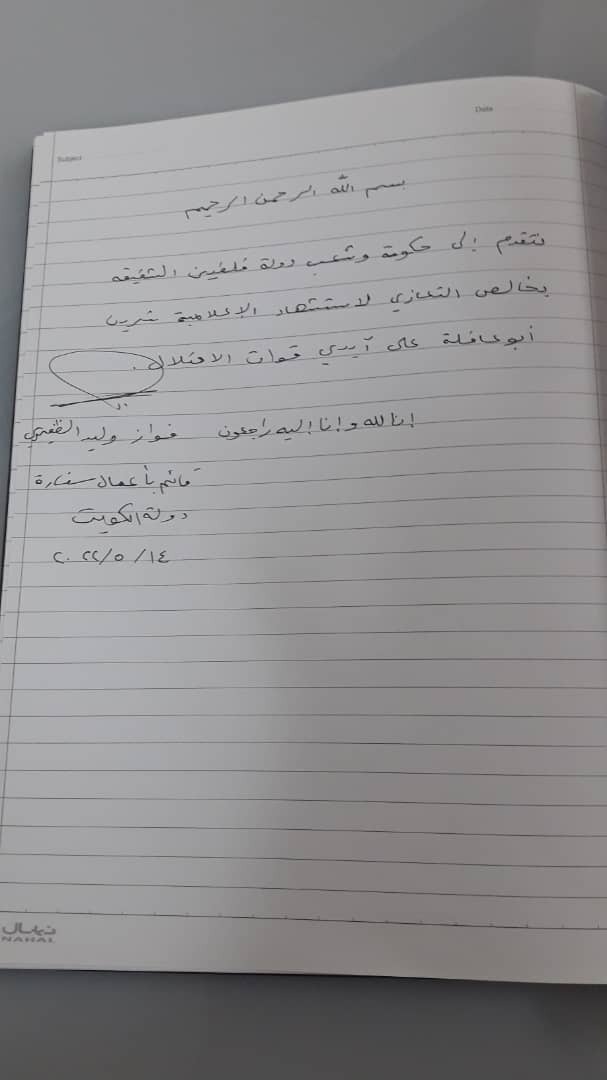 Subject
Date
بسم الله الرحمن الرحيم
نتقدم إلى حكومة وشعب دولة فلسطين الشقيقه
بخالص التعازي لاستشهاد الإعلامية شرين
أبو عاقلة على أيدي قوات الاحتلال.
إنا لله وإنا إليه راجعون فواز وليد
قائم بأعمال سفارة
دولة الكويت
٢٠٢٢/٥/١٤
نهال
NAHAL